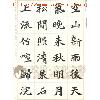 空山新雨後天
氣晚來秋明月
松間照清泉石
上流竹喧歸浣